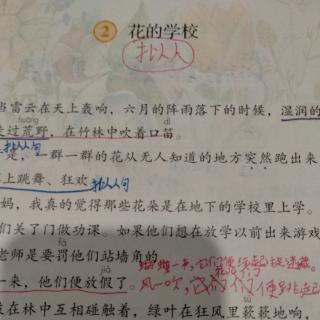 2 花的学校
拟人
当雷云在天上轰响,六月的阵雨落下的时候,湿润的
huāng dí
走过荒野,在竹林中吹着口笛。
拟人句
是,一群一群的花从无人知道的地方突然跑出来
上跳舞、狂欢 拟人句
妈,我真的觉得那些花朵是在地下的学校里上学。
们关了门做功课。如果他们想在放学以前出来游戏
fá jiǎ
老师是要罚他们站墙角的。
一来,他们便放假了。
风一吹,它
在林中互相碰触着,绿叶在狂风里簌簌地响,